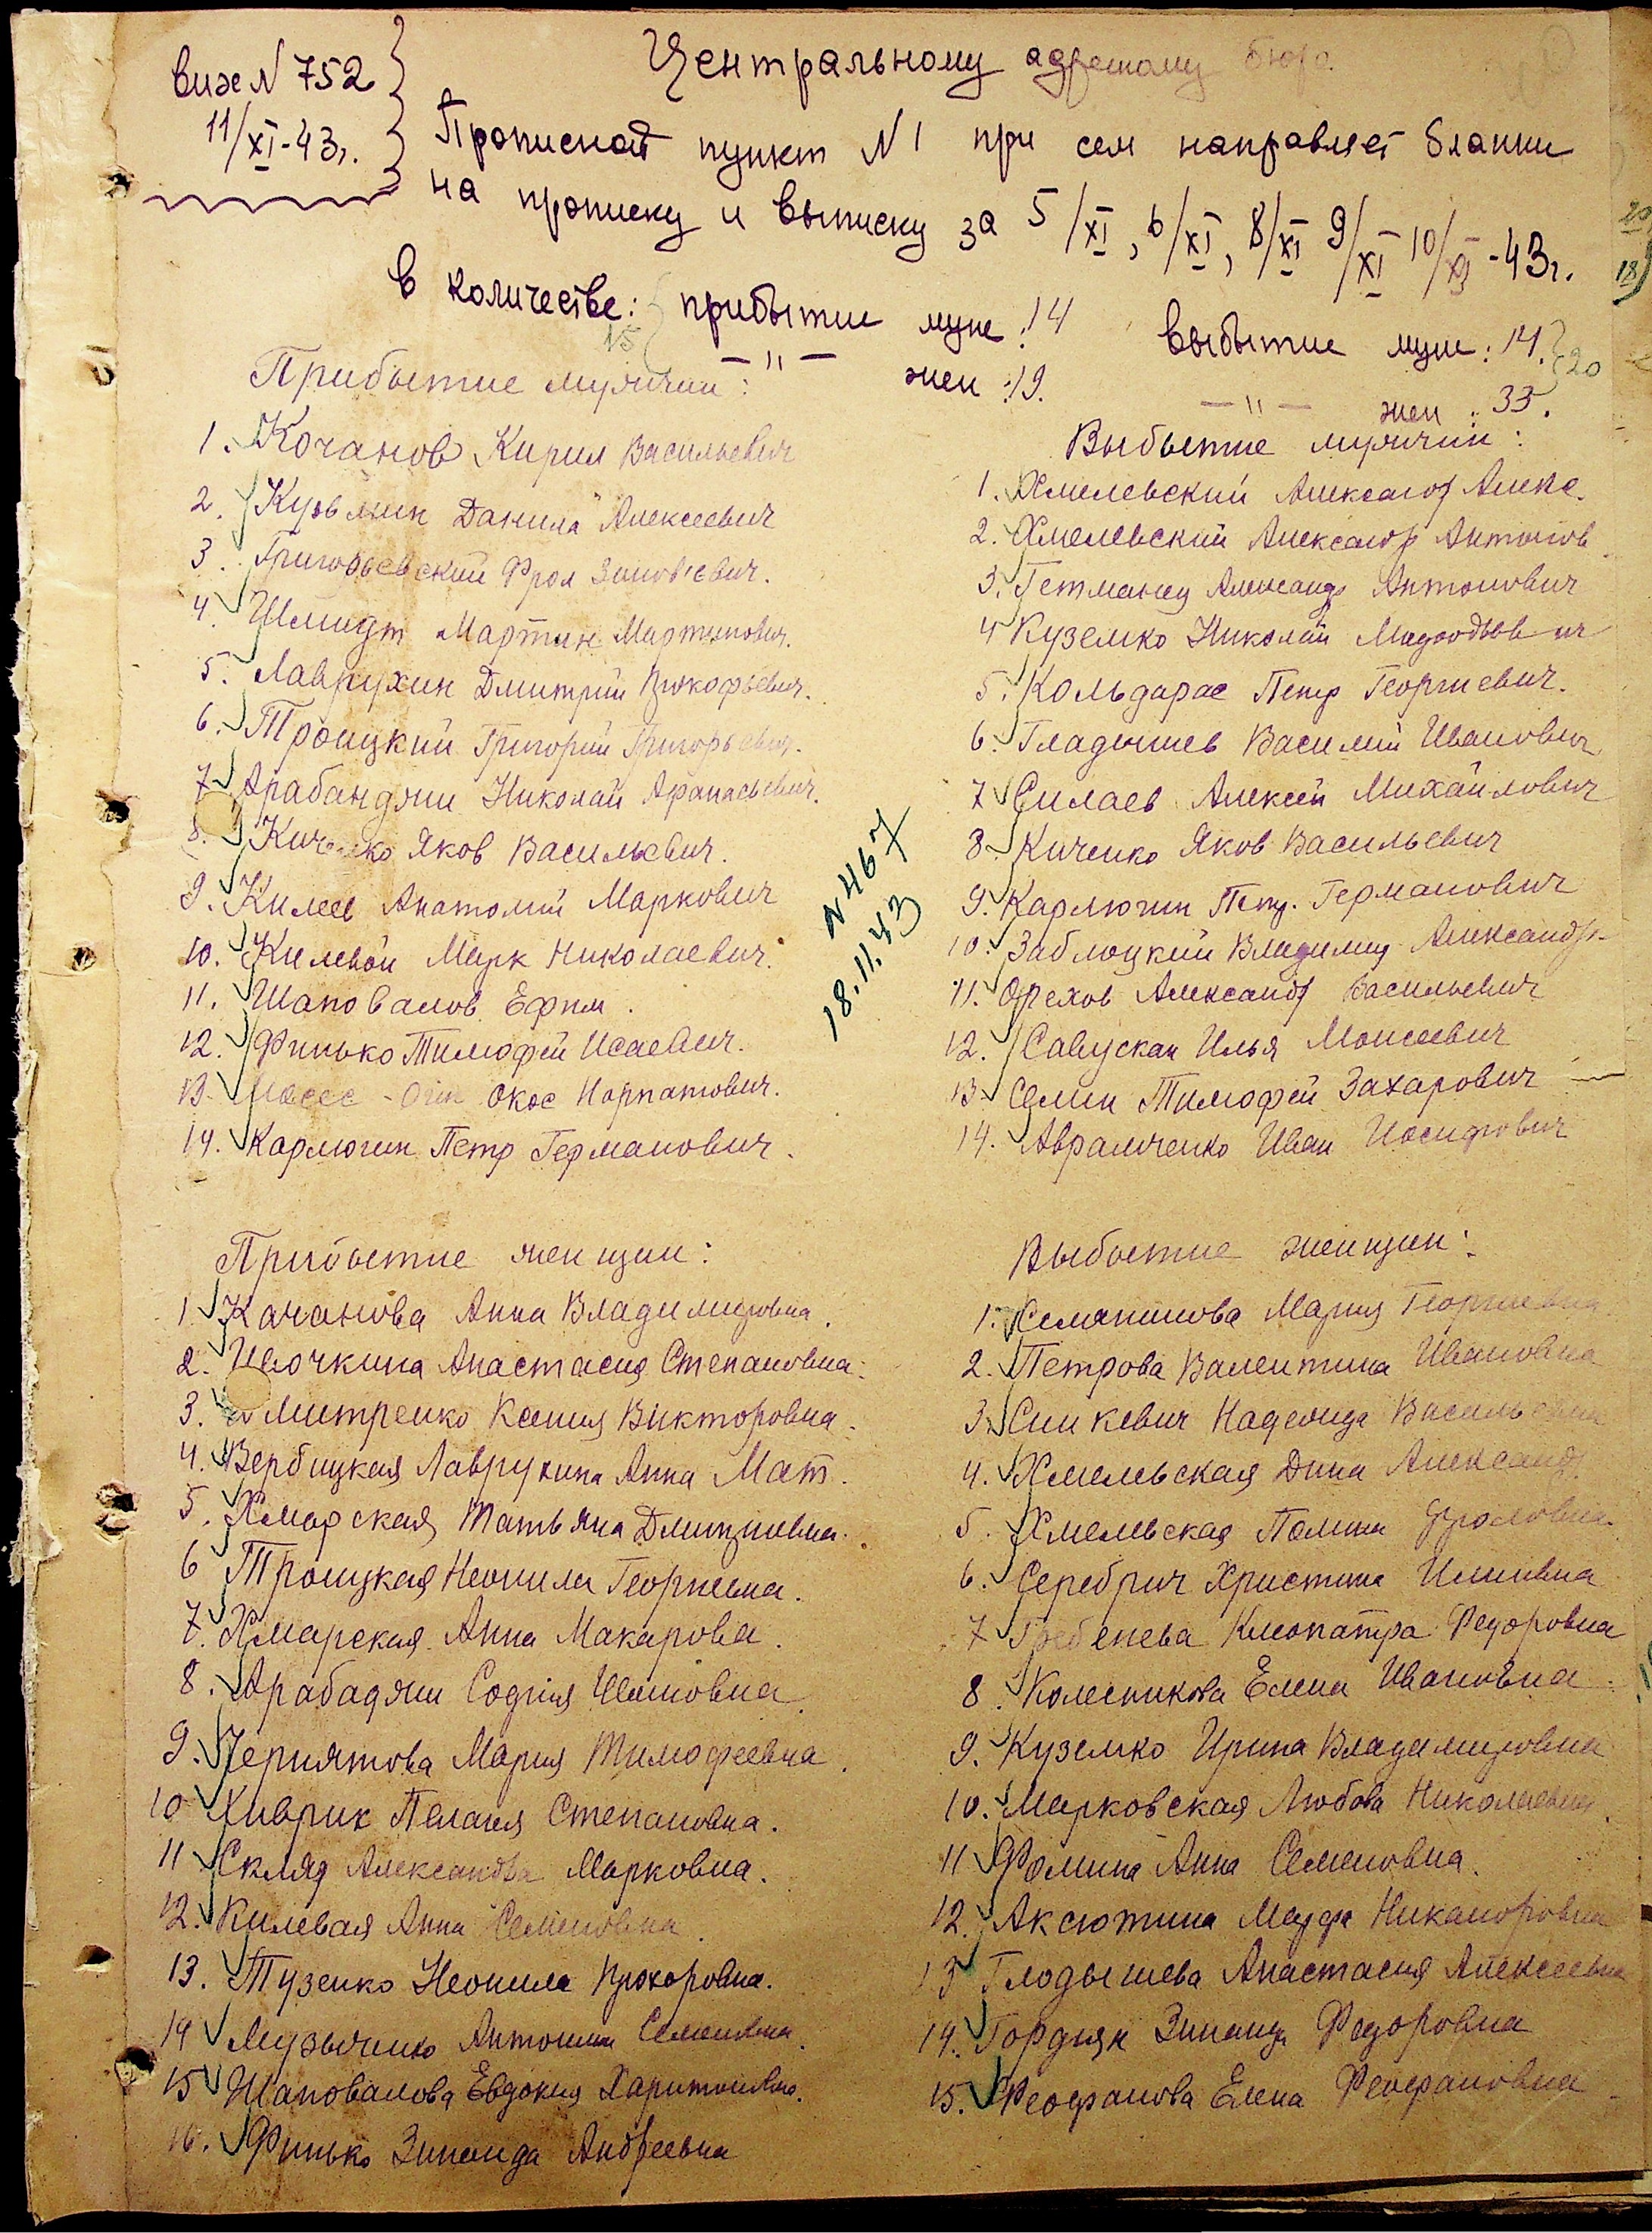 Вих N 752
11/XI-43г.
Центральному адресному бюро
Прописной пункт N 1 при сем направляет бланки
на прописку и выписку за 5/XI, 6/XI, 8/XI 9/XI 10/XI-43г.
в количестве: прибытие муж: 14 выбытие муж: 14. 20
15 —"— жен: 19. —"— жен: 33.
Прибытие мужчин:
1. Кочанов Кирил Васильевич
2. Кузьмин Данила Алексеевич
3. Григорьевский Фрол Зиновьевич.
4. Шмидт Мартин Мартынович.
5. Лаврухин Дмитрий Прокофьевич.
6. Троицкий Григорий Григорьевич.
7 Арабанджи Николай Афанасьевич.
8. Киченко Яков Васильевич.
9. Килев Анатолий Маркович
10. Килевой Марк Николаевич.
11. Шаповалов Ефим.
12. Финько Тимофей Исаевич.
13. Окос Карпатович.
14. Карлюгин Петр Германович.
Выбытие мужчин:
1. Хмелевский Александр Алекс.
2. Хмелевский Александр Антонов
3. Гетманец Александр Антонович
4 Куземко Николай
5. Кольдарас Петр Георгиевич.
6. Гладышев Василий Иванович
7 Силаев Алексей Михайлович
8. Киченко Яков Васильевич
9. Карлюгин Петр. Германович
10. Заблоцкий Владимир Александр.
11. Орехов Александр Васильевич
12. Савускан Илья Моисеевич
13. Семин Тимофей Захарович
14. Авраменко Иван Иосифович
N 467
18.11.43
Прибытие женщин:
1 Качанова Анна Владимировна.
2. Ивочкина Анастасия Степановна.
3. Дмитренко Ксения Викторовна.
4. Вербицкая Лаврухина Анна Мат.
5. Хмарская Татьяна Дмитриевна.
6 Троицкая Неонила Георгиевна.
7. Хмарская Анна Макаровна.
8. Арабаджи София Ивановна.
9. Чернятова Мария Тимофеевна.
10 Хиврих Пелагея Степановна.
11 Скляр Александра Марковна.
12. Килевая Анна Семеновна.
13. Тузенко Неонила Прохоровна.
14 Музыченко Антонина Семеновна.
15 Шаповалова Евдокия Харитоновна.
16. Финько Зинаида Андреевна
Выбытие женщин:
1. Семянникова Мария Георгиевна
2. Петрова Валентина Ивановна
3. Синкевич Надежда Васильевна
4. Хмельская Дина Александ.
5. Хмелевская Полина Фроловна.
6. Серебрич Христина Ильинвна
7 Гребенева Клеопатра Федоровна
8. Колесникова Елена Ивановна.
9. Куземко Ирина Владимировна
10. Марковская Любовь Николаевна.
11 Фомина Анна Семеновна.
12. Аксютина Марфа Никаноровна
13 Глодышева Анастасия Алексеевна
14. Гордияк Зинаида Федоровна
15. Феофанова Елена Феофановна